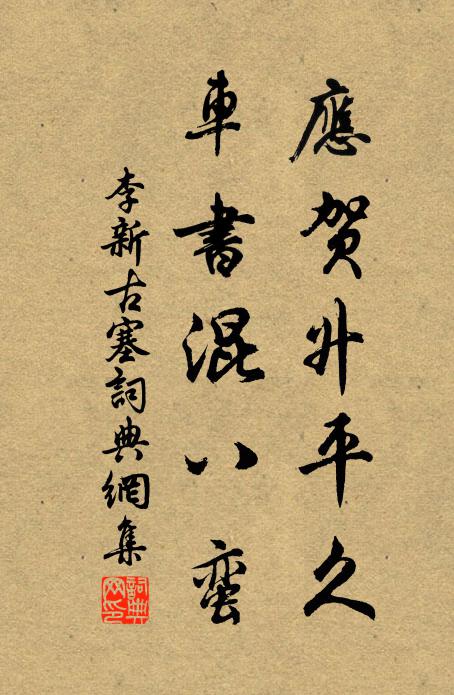 應賀升平久
車書混八蛮
李新古塞詞典網集
詞典网印